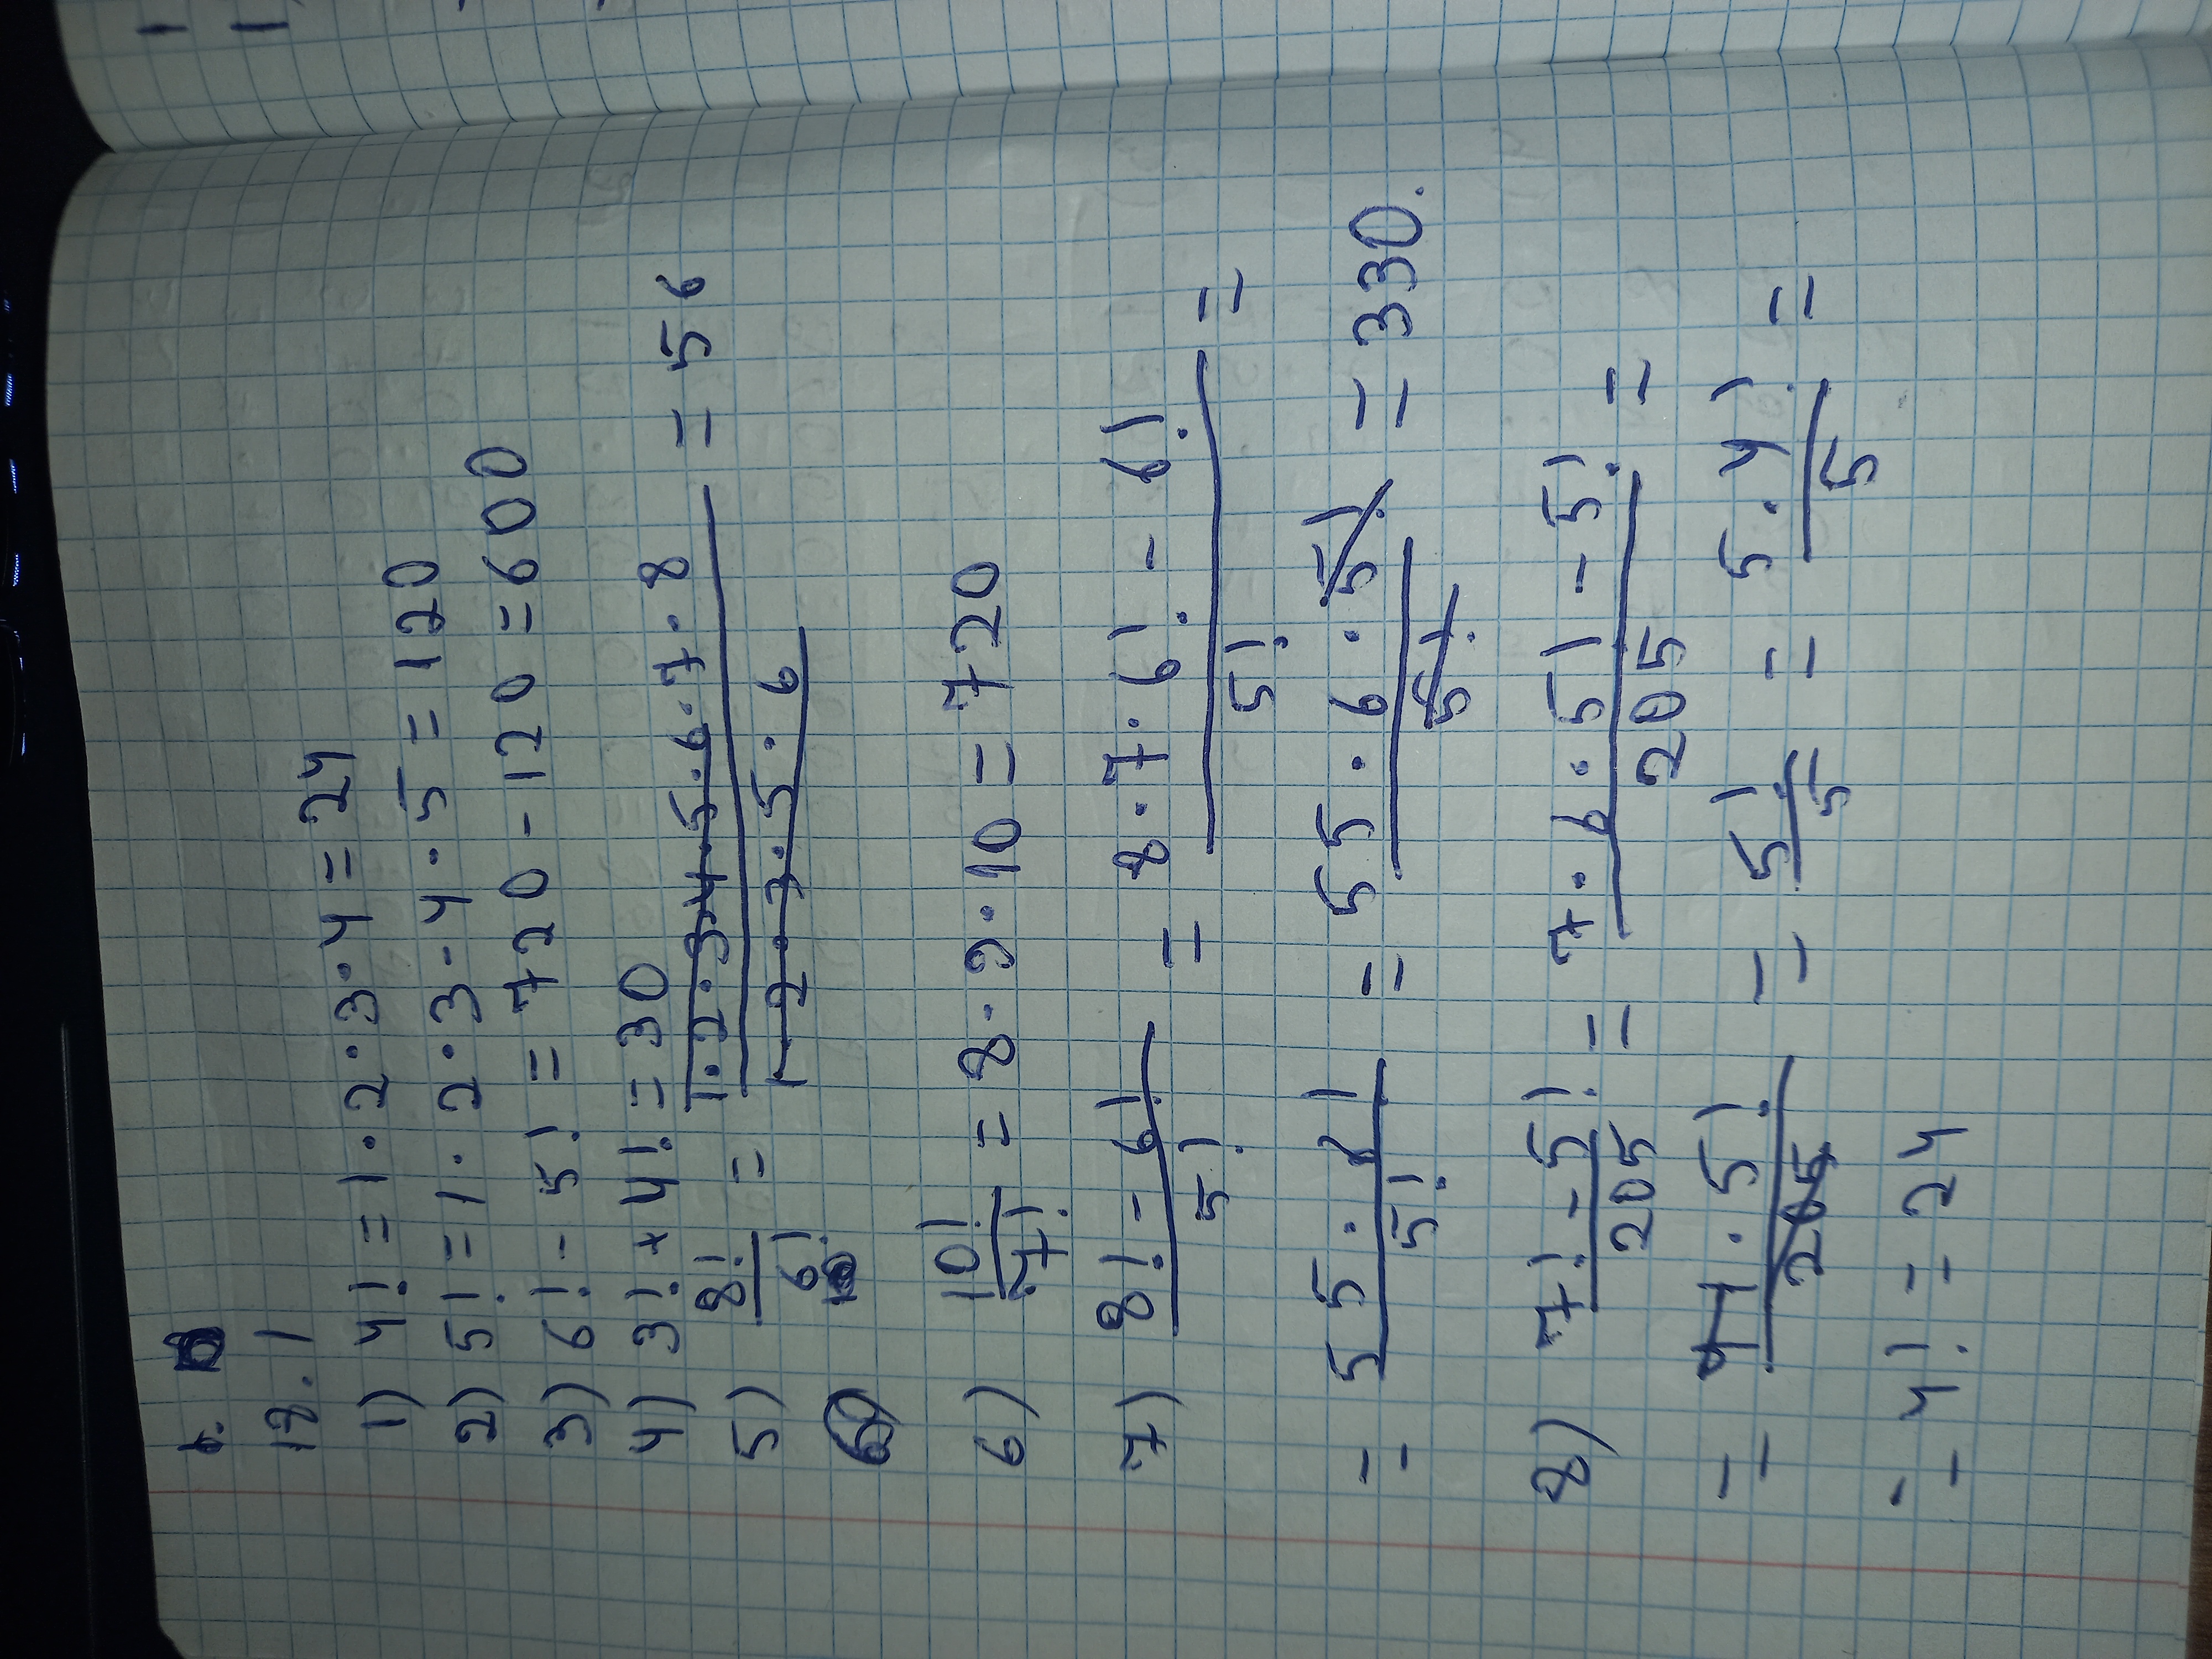 18.1
1) 4! = 1 · 2 · 3 · 4 = 24
2) 5! = 1 · 2 · 3 · 4 · 5 = 120
3) 6! - 5! = 720 - 120 = 600
4) 3! + 4! = 30
5) 8!/6! = 1·2·3·4·5·6·7·8 / 1·2·3·5·6 = 56
6) 10!/7! = 8 · 9 · 10 = 720
7) (8! - 6!)/5! = (8 · 7 · 6! - 6!)/5! =
= 55 · 6!/5! = 55 · 6 · 5!/5! = 330.
8) (7! - 5!)/205 = (7 · 6 · 5! - 5!)/205 =
= 41 · 5!/205 = 5!/5 = 5 · 4!/5 =
= 4! = 24